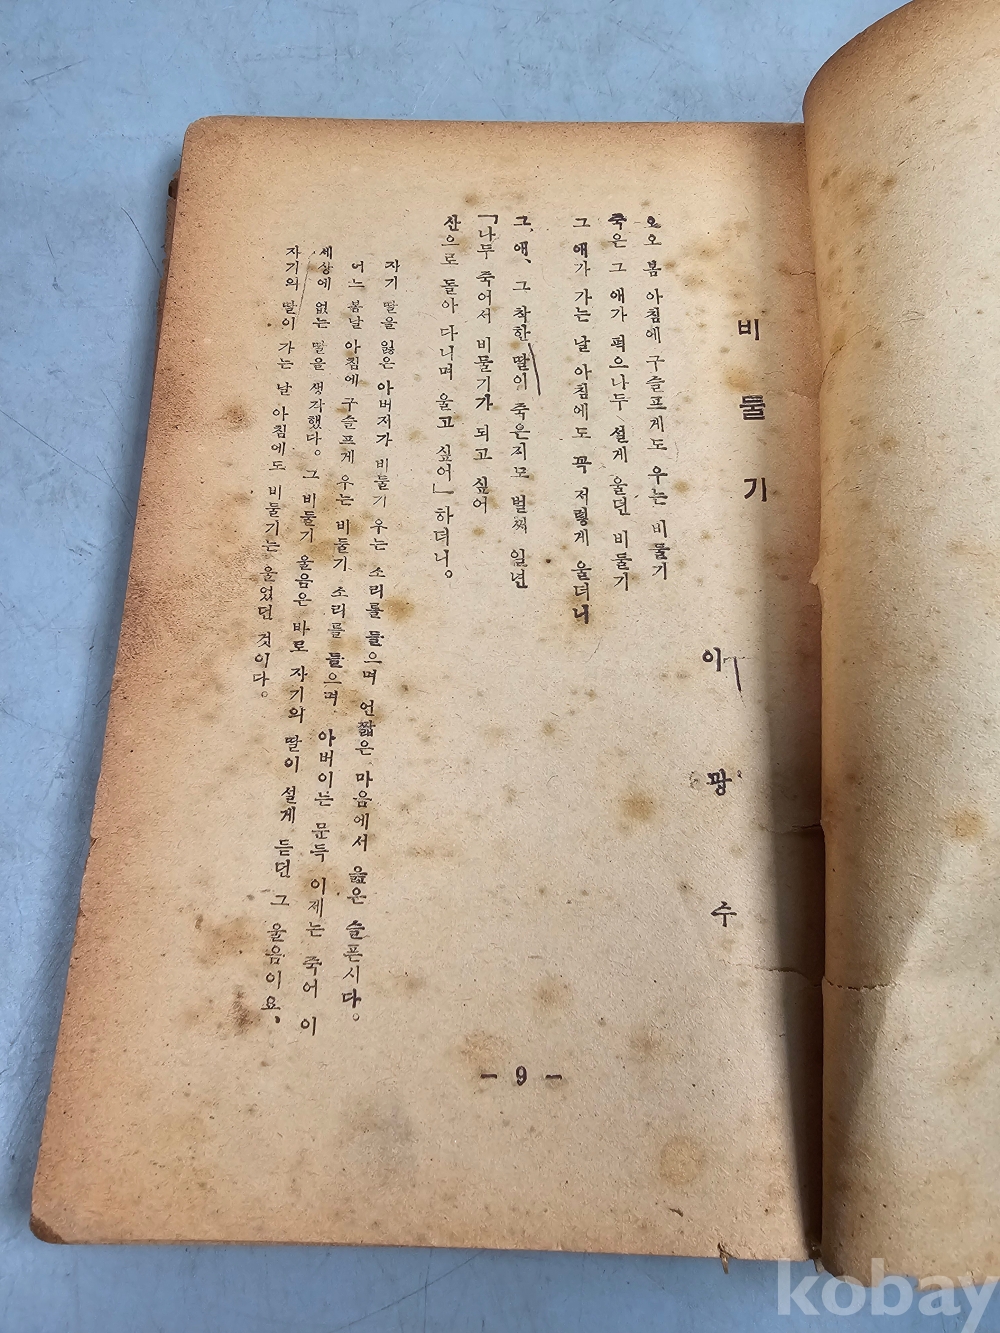 비둘기
이광수
오오 봄 아침에 구슬프게도 우는 비둘기
죽은 그 애가 퍽으나두 설게 울던 비둘기
그 애가 가는 날 아침에도 꼭 저렇게 울더니
그, 애, 그 착한 딸이 죽은지도 벌써 일년
「나두 죽어서 비둘기가 되고 싶어
산으로 돌아 다니며 울고 싶어」하더니。
자기 딸을 잃은 아버지가 비둘기 우는 소리를 들으며 언짢은 마음에서 읊은 슬픈시다。
어느 봄날 아침에 구슬프게 우는 비둘기 소리를 들으며 아버이는 문득 이제는 죽어 이
세상에 없는 딸을 생각했다。그 비둘기 울음은 바로 자기의 딸이 설게 듣던 그 울음이요、
자기의 딸이 가는 날 아침에도 비둘기는 울었던 것이다。
- 9 -
kobay